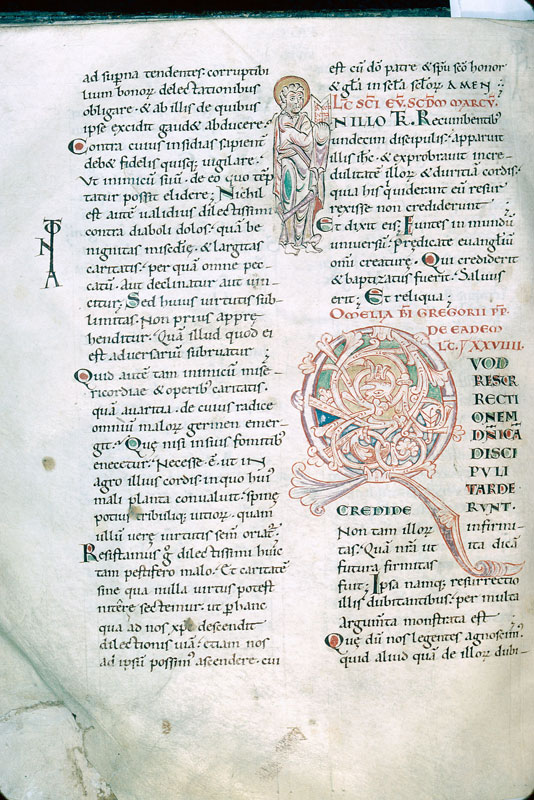 ad superna tendentes· corruptibi
lium bonoꝝ delectationibus
obligare· & ab illis de quibus
ipse excidit gaud& abducere·
Contra cuius insidias sapient̄
deb& fidelis quisqꝫ vigilare·
Ut inimicū suū· de eo quo tēp
tatur possit elidere; Nichil
est autē validius dilectissimi
contra diaboli dolos· quā be
nignitas misc̄die· & largitas
caritatis· per quā omne pec
catū· aut declinatur aut uin
citur; Sed huius virtutis sub
limitas· Non prius appre
henditur· Quā illud quod ei
est adversariū subruatur;
Quid autē tam inimicū mise
ricordiae & operibꝰ caritatis·
quā avaritia· de cuius radice
omniū maloꝝ germen emer
git· Quę nisi insuis fomitibꝰ
enecetur· Necesse· ē· ut in
agro illius cordis· in quo huiꝰ
mali planta convaluit· spinę
potius tribuliqꝫ uitioꝝ· quam
ullū verę virtutis sem̄ oriat᷑·
Resistamus g̊ dilectissimi huic
tam pestifero malo· Et caritatē
sine qua nulla virtus potest
nitere sectemur· ut ꝑ hanc
qua ad nos xp̄c descendit
dilectionis uiā· etiam nos
ad ipsū possimꝰ ascendere· cui
est cū dō patre & spū scō honor
& gl̄a in sc̄la sc̄loꝝ AMEN
LC̄ SC̄I EV̄· SCD̄M MARCV̄·
N ILLO TR̄· Recumbentibꝰ
undecim discipulis· apparuit
illis ih̄c· & exprobravit incre
dulitatē illoꝝ & duritiā cordis·
quia his qui viderant eū resur
rexisse non crediderunt;
Et dixit eis; Euntes in mundū
universū· Prędicate evangłiū
omī creaturę· Qui crediderit
& baptizatus fuerit· Salvus
erit; Et reliqua;
OMELIA BĪ GREGORII PP̄·
DE EADEM
LC̄· XXVIIII·
QVOD
RESVR
RECTI
ONEM
DN̄ICĀ
DISCI
PVLI
TARDE
CREDIDE RVNT·
Non tam illoꝝ infirmi-
tas· Quā nr̄a ut ita dicā
futura firmitas
fuit; Ipsa namqꝫ resurrectio
illis dubitantibus· per multa
argum̄ta monstrata est
Quę dū nos legentes agnoscimꝰ·
quid aliud quā de illoꝝ dubi-